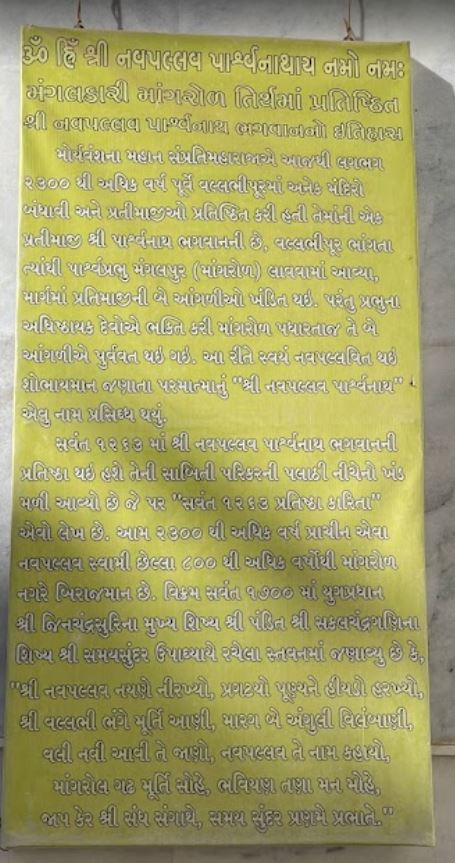 ૐ હ્રિં શ્રી નવપલ્લવ પાર્શ્વનાથાય નમો નમઃ
મંગલકારી માંગરોળ તિર્થમાં પ્રતિષ્ઠિત
શ્રી નવપલ્લવ પાર્શ્વનાથ ભગવાનનો ઇતિહાસ
મોર્યવંશના મહાન સંપ્રતિમહારાજાએ આજથી લગભગ
૨૩૦૦ થી અધિક વર્ષ પૂર્વે વલ્લભીપૂરમાં અનેક મંદિરો
બંધાવી અને પ્રતીમાજીઓ પ્રતિષ્ઠિત કરી હતી તેમાંની એક
પ્રતીમાજી શ્રી પાર્શ્વનાથ ભગવાનની છે, વલ્લભીપૂર ભાંગતા
ત્યાંથી પાર્શ્વપ્રભુ મંગલપુર (માંગરોળ) લાવવામાં આવ્યા,
માર્ગમાં પ્રતિમાજીની બે આંગળીઓ ખંડિત થઇ. પરંતુ પ્રભુના
અધિષ્ઠાયક દેવોએ ભક્તિ કરી માંગરોળ પધારતાજ તે બે
આંગળીએ પુર્વવત થઇ ગઇ. આ રીતે સ્વયં નવપલ્લવિત થઇ
શોભાયમાન જણાતા પરમાત્માનું "શ્રી નવપલ્લવ પાર્શ્વનાથ"
એવુ નામ પ્રસિધ્ધ થયું.
સવંત ૧૨૬૩ માં શ્રી નવપલ્લવ પાર્શ્વનાથ ભગવાનની
પ્રતિષ્ઠા થઇ હશે તેની સાબિતી પરિકરની પલાઠી નીચેનો ખંડ
મળી આવ્યો છે જે પર "સવંત ૧૨૬૩ પ્રતિષ્ઠા કારિતા"
એવો લેખ છે. આમ ૨૩૦૦ થી અધિક વર્ષ પ્રાચીન એવા
નવપલ્લવ સ્વામી છેલ્લા ૮૦૦ થી અધિક વર્ષોથી માંગરોળ
નગરે બિરાજમાન છે. વિક્રમ સવંત ૧૭૦૦ માં યુગપ્રધાન
શ્રી જિનચંદ્રસુરિના મુખ્ય શિષ્ય શ્રી પંડિત શ્રી સકલચંદ્રગણિના
શિષ્ય શ્રી સમયસુંદર ઉપાધ્યાયે રચેલા સ્તવનમાં જણાવ્યુ છે કે,
"શ્રી નવપલ્લવ નયણે નીરખ્યો, પ્રગટયો પૂણ્યને હીયડો હરખ્યો,
શ્રી વલ્લભી ભંગે મૂર્તિ આણી, મારગ બે અંગુલી વિલંબાણી,
વલી નવી આવી તે જાણો, નવપલ્લવ તે નામ કહાયો,
માંગરોલ ગઢ મૂર્તિ સોહે, ભવિયણ તણા મન મોહે,
જાપ કેર શ્રી સંઘ સંગાથે, સમય સુંદર પ્રણમે પ્રભાતે."